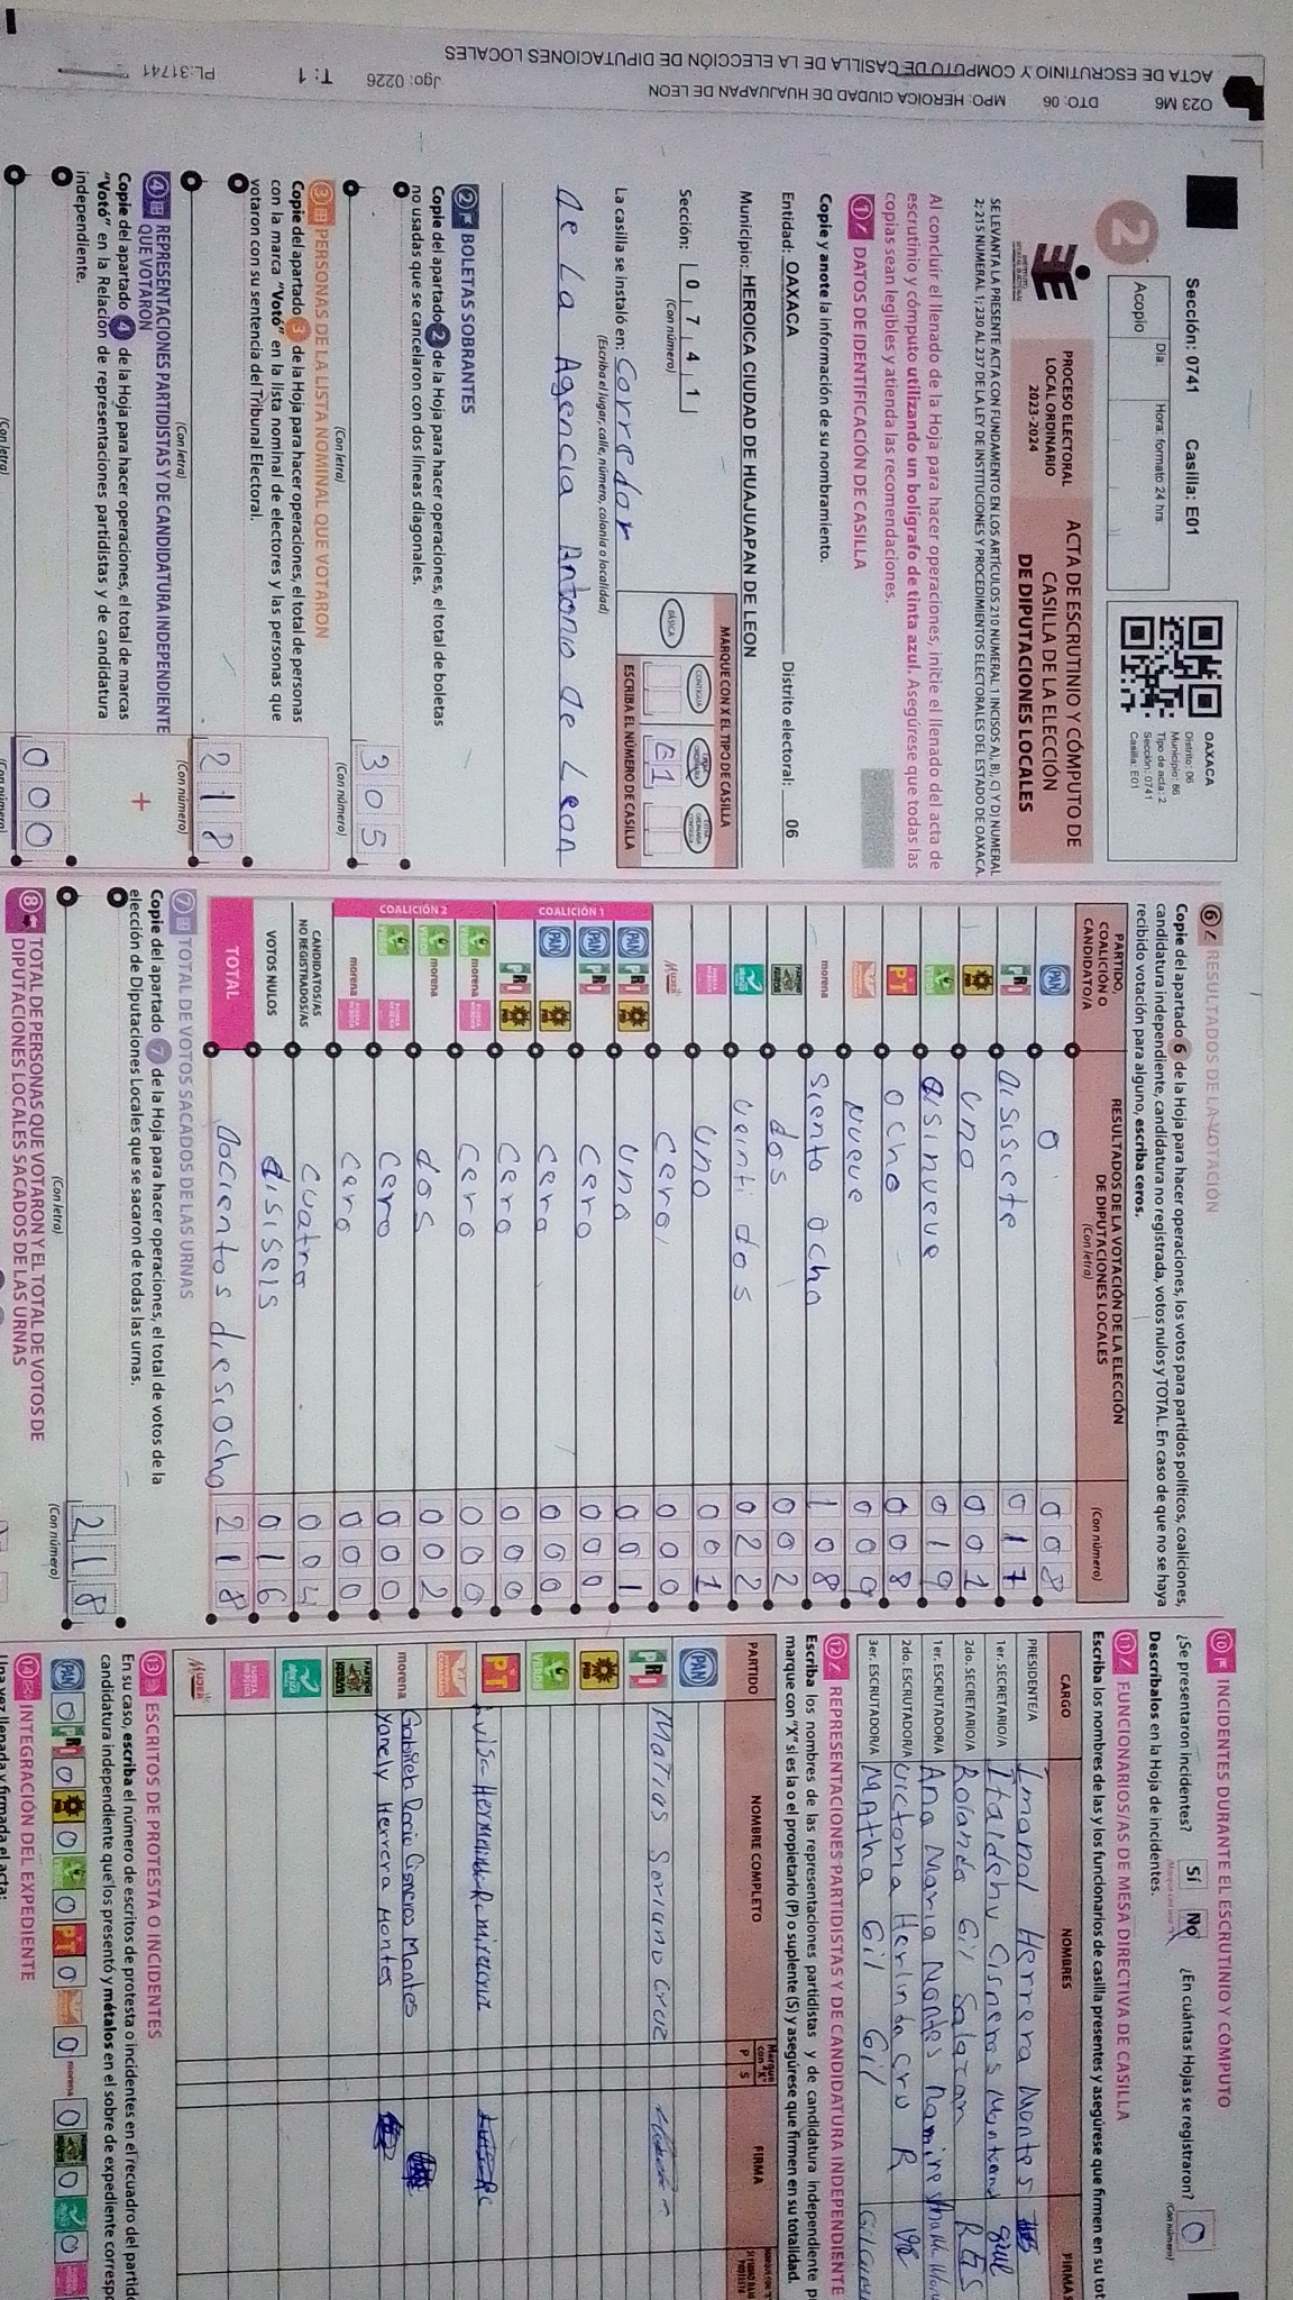 O23 M6 DTO: 06 MPO: HEROICA CIUDAD DE HUAJUAPAN DE LEON Jgo: 0226 T: 1 PL:31741
ACTA DE ESCRUTINIO Y CÓMPUTO DE CASILLA DE LA ELECCIÓN DE DIPUTACIONES LOCALES
Sección: 0741 Casilla: E01
2
Día: Hora: formato 24 hrs:
Acopio
OAXACA
Distrito: 06
Municipio: 66
Tipo de acta: 2
Sección: 0741
Casilla: E01
PROCESO ELECTORAL
LOCAL ORDINARIO
2023-2024
ACTA DE ESCRUTINIO Y CÓMPUTO DE
CASILLA DE LA ELECCIÓN
DE DIPUTACIONES LOCALES
SE LEVANTA LA PRESENTE ACTA CON FUNDAMENTO EN LOS ARTÍCULOS 210 NUMERAL 1 INCISOS A), B), C) Y D) NUMERAL
2; 215 NUMERAL 1; 230 AL 237 DE LA LEY DE INSTITUCIONES Y PROCEDIMIENTOS ELECTORALES DEL ESTADO DE OAXACA.
Al concluir el llenado de la Hoja para hacer operaciones, inicie el llenado del acta de
escrutinio y cómputo utilizando un bolígrafo de tinta azul. Asegúrese que todas las
copias sean legibles y atienda las recomendaciones.
1 DATOS DE IDENTIFICACIÓN DE CASILLA
Copie y anote la información de su nombramiento.
Entidad: OAXACA Distrito electoral: 06
Municipio: HEROICA CIUDAD DE HUAJUAPAN DE LEON
Sección: 0 7 4 1
(Con número)
MARQUE CON X EL TIPO DE CASILLA
BÁSICA CONTIGUA
E1
ESCRIBA EL NÚMERO DE CASILLA
La casilla se instaló en: Corredor
(Escriba el lugar, calle, número, colonia o localidad)
de La Agencia Antonio de Leon
2 BOLETAS SOBRANTES
Copie del apartado 2 de la Hoja para hacer operaciones, el total de boletas
no usadas que se cancelaron con dos líneas diagonales.
3 0 5
(Con letra) (Con número)
3 PERSONAS DE LA LISTA NOMINAL QUE VOTARON
Copie del apartado 3 de la Hoja para hacer operaciones, el total de personas
con la marca "Votó" en la lista nominal de electores y las personas que
votaron con su sentencia del Tribunal Electoral.
2 1 8
(Con letra) (Con número)
4 REPRESENTACIONES PARTIDISTAS Y DE CANDIDATURA INDEPENDIENTE
QUE VOTARON
+
Copie del apartado 4 de la Hoja para hacer operaciones, el total de marcas
"Votó" en la Relación de representaciones partidistas y de candidatura
independiente.
0 0 0
(Con letra) (Con número)
6 RESULTADOS DE LA VOTACIÓN
Copie del apartado 6 de la Hoja para hacer operaciones, los votos para partidos políticos, coaliciones,
candidatura independiente, candidatura no registrada, votos nulos y TOTAL. En caso de que no se haya
recibido votación para alguno, escriba ceros.
PARTIDO, COALICIÓN O CANDIDATO/A RESULTADOS DE LA VOTACIÓN DE LA ELECCIÓN DE DIPUTACIONES LOCALES (Con letra) (Con número)
PAN 0 008
PRI disisiete 017
PRD uno 001
VERDE disinueve 019
PT ocho 008
nueve 009
morena siento ocho 108
dos 002
veinti dos 022
uno 001
MUJER cero 000
COALICIÓN 1
PAN PRI PRD uno 001
PAN PRI cero 000
PAN PRD cero 000
PRI PRD cero 000
COALICIÓN 2
VERDE morena cero 000
VERDE morena dos 002
VERDE cero 000
morena cero 000
CANDIDATOS/AS NO REGISTRADOS/AS cuatro 004
VOTOS NULOS disiseis 016
TOTAL docientos diesiocho 218
7 TOTAL DE VOTOS SACADOS DE LAS URNAS
Copie del apartado 7 de la Hoja para hacer operaciones, el total de votos de la
elección de Diputaciones Locales que se sacaron de todas las urnas.
2 1 8
(Con letra) (Con número)
8 TOTAL DE PERSONAS QUE VOTARON Y EL TOTAL DE VOTOS DE
DIPUTACIONES LOCALES SACADOS DE LAS URNAS
10 INCIDENTES DURANTE EL ESCRUTINIO Y CÓMPUTO
¿Se presentaron incidentes? Sí No ¿En cuántas Hojas se registraron? 0
(Con número)
Descríbalos en la Hoja de incidentes.
11 FUNCIONARIOS/AS DE MESA DIRECTIVA DE CASILLA
Escriba los nombres de las y los funcionarios de casilla presentes y asegúrese que firmen en su tot
CARGO NOMBRES FIRMAS
PRESIDENTE/A Imanol Herrera Montes
1er. SECRETARIO/A Italdehy Cisneros
2do. SECRETARIO/A Rolando Gil Salazar RGS
1er. ESCRUTADOR/A Ana Maria
2do. ESCRUTADOR/A Victoria Herlinda Cru R
3er. ESCRUTADOR/A Martha Gil Gil
12 REPRESENTACIONES PARTIDISTAS Y DE CANDIDATURA INDEPENDIENTE
Escriba los nombres de las representaciones partidistas y de candidatura independiente p
marque con "X" si es la o el propietario (P) o suplente (S) y asegúrese que firmen en su totalidad.
PARTIDO NOMBRE COMPLETO Marque con "X" P S FIRMA
PAN
PRI Matias Soriano Cruz
PRD
VERDE
PT
morena Gabriela Cisneros Montes
Yanely Herrera Montes
MUJER
13 ESCRITOS DE PROTESTA O INCIDENTES
En su caso, escriba el número de escritos de protesta o incidentes en el recuadro del partid
candidatura independiente que los presentó y métalos en el sobre de expediente corresp
PAN 0 PRI 0 PRD 0 VERDE 0 PT 0 0 morena 0 0 0
14 INTEGRACIÓN DEL EXPEDIENTE
Una vez llenada y firmada el acta: